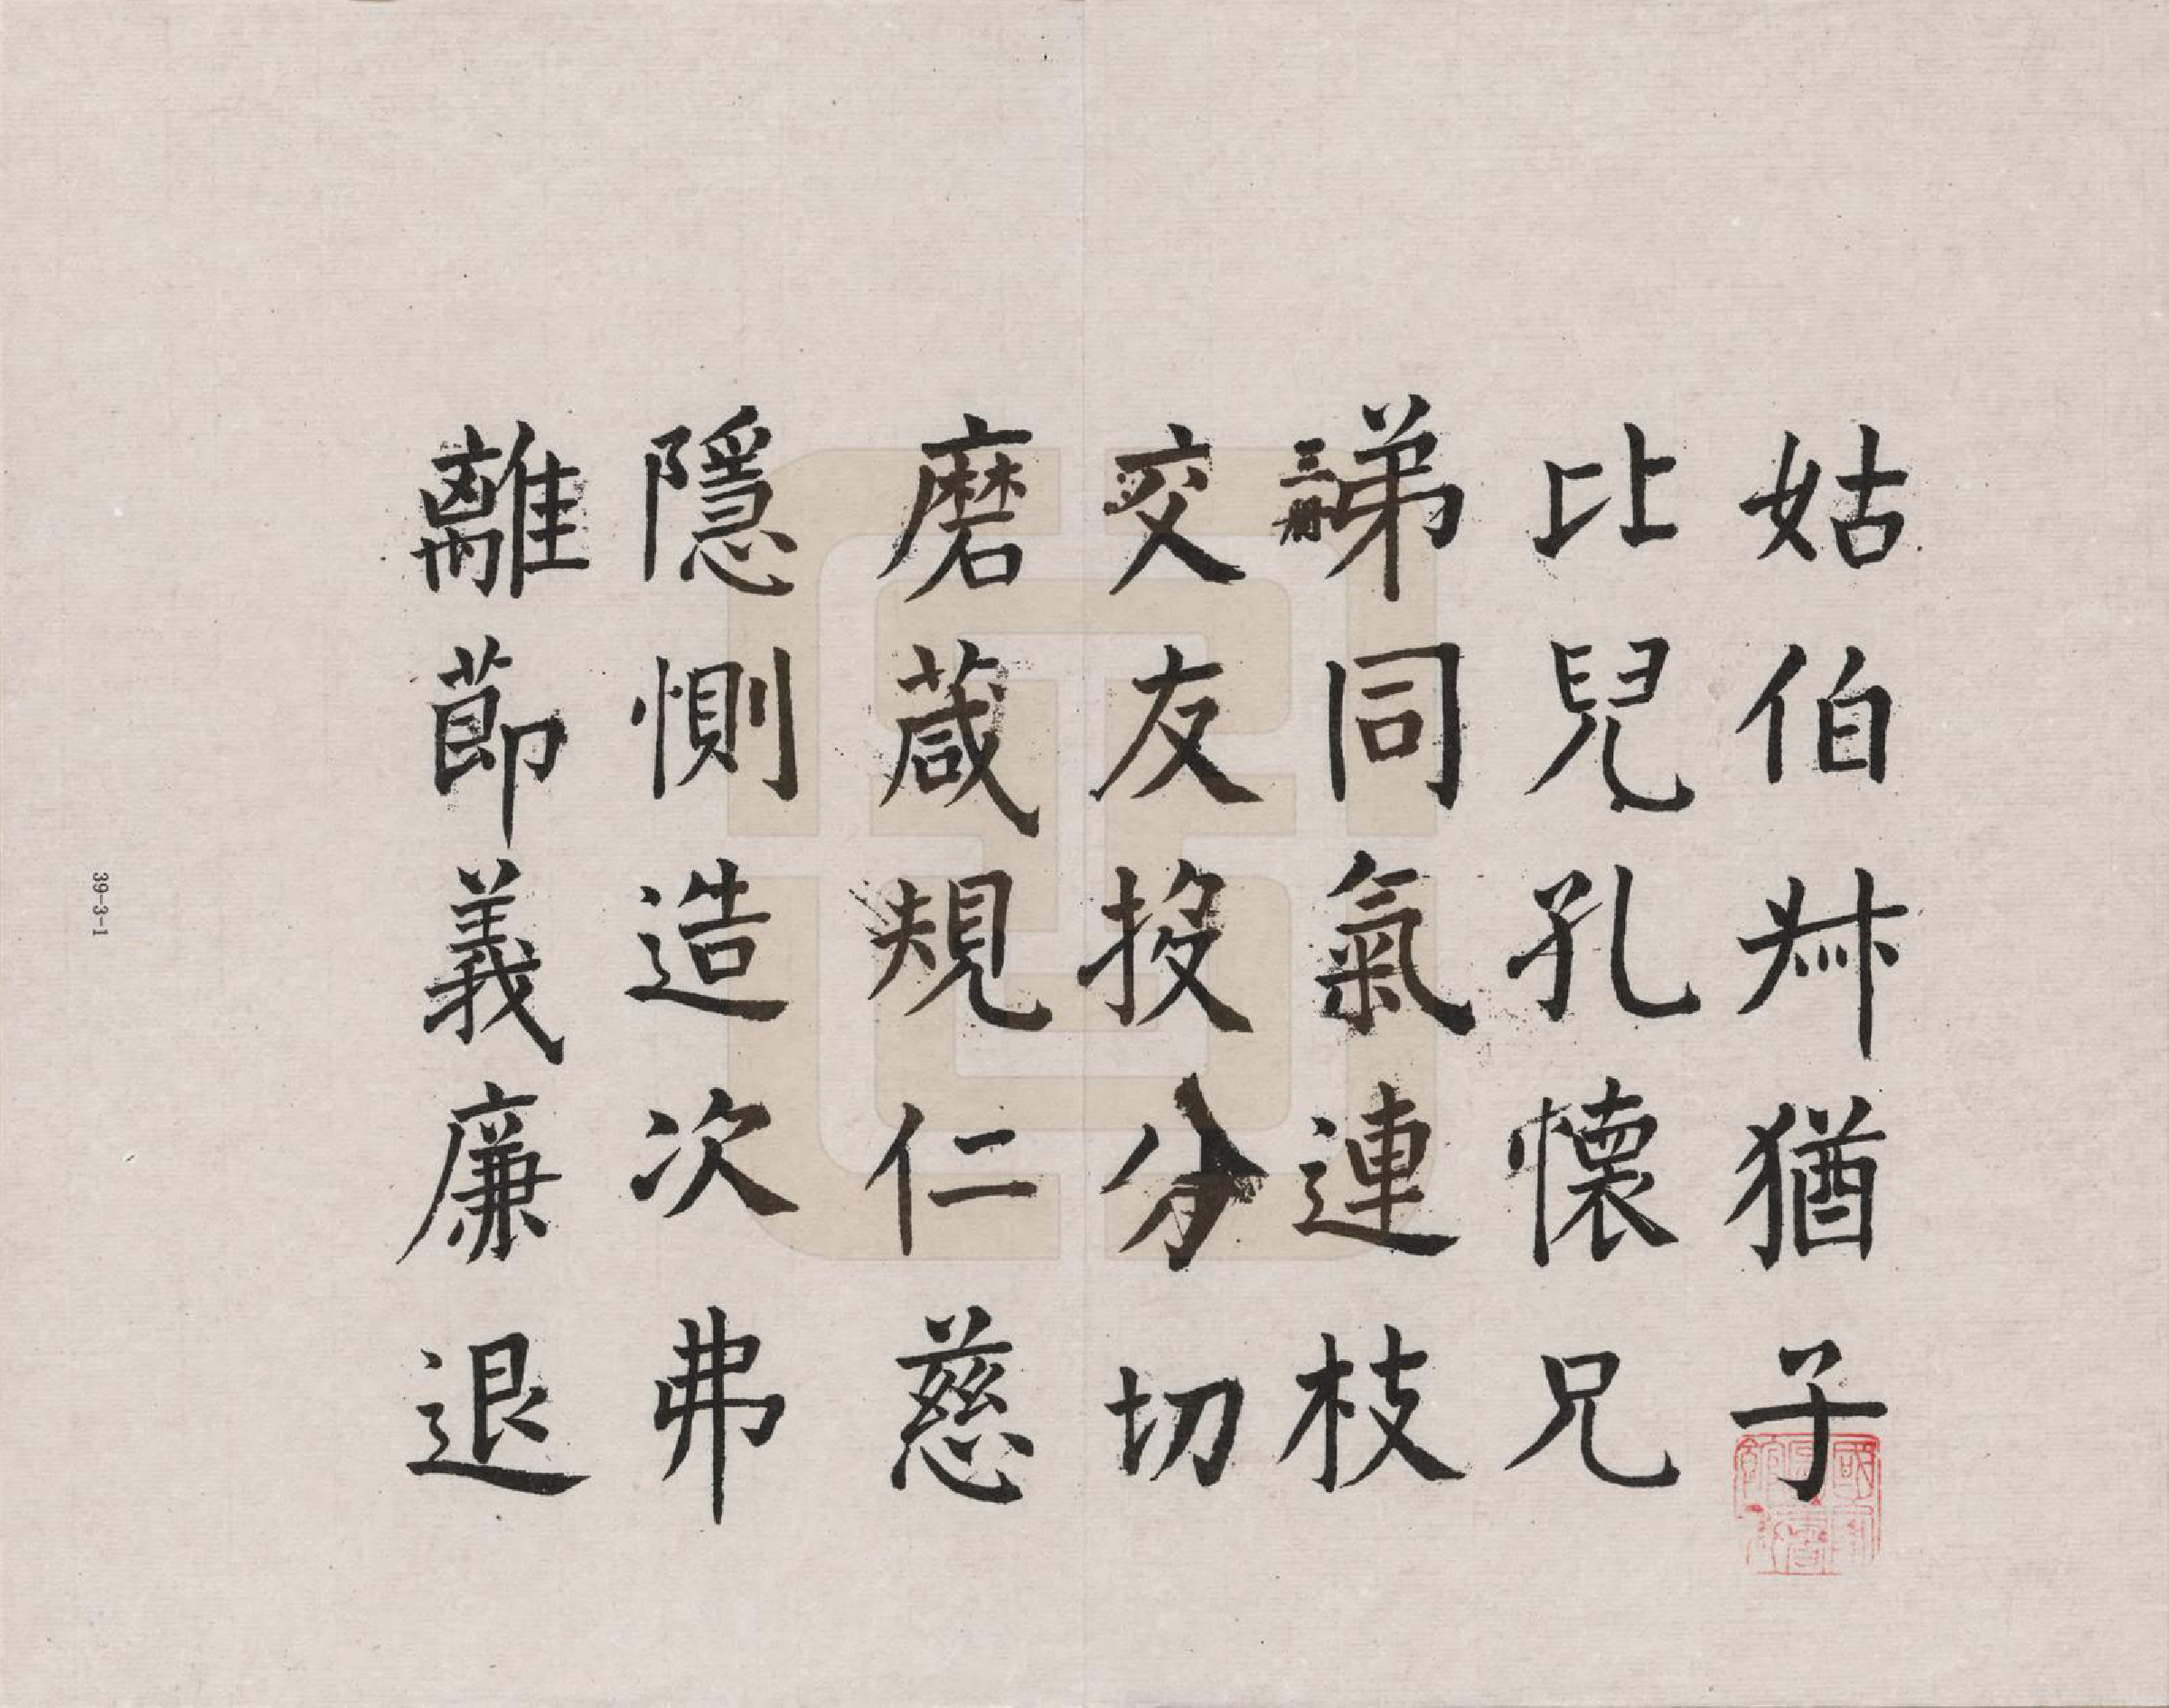 姑伯叔猶子
比兒孔懷兄
弟同氣連枝
交友投分切
磨葴規仁慈
隱惻造次弗
離莭義廉退
三册
39-3-1